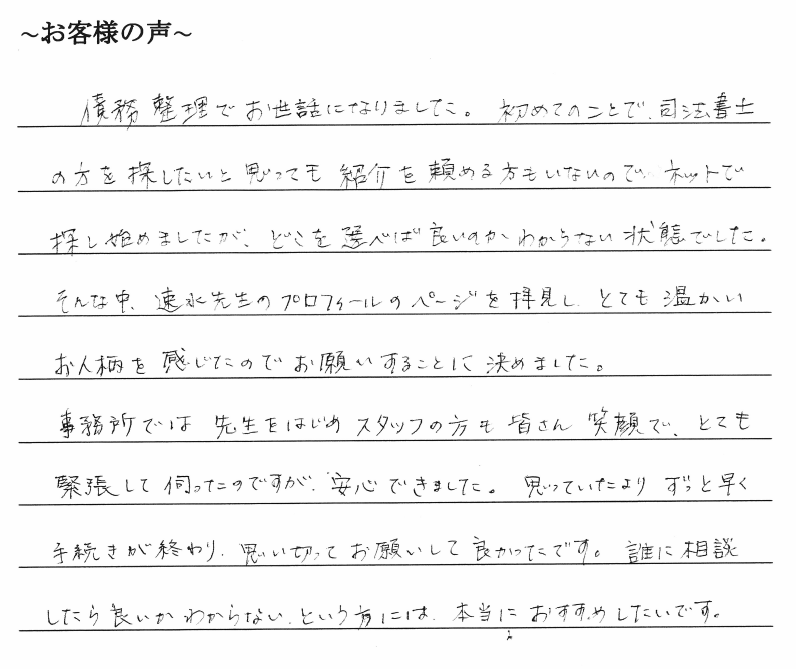 ~お客様の声~
債務整理でお世話になりました。初めてのことで、司法書士
の方を探したいと思っても紹介を頼める方もいないので、ネットで
探し始めましたが、どこを選べば良いのかわからない状態でした。
そんな中、速水先生のプロフィールのページを拝見し、とても温かい
お人柄を感じたのでお願いすることに決めました。
事務所では先生をはじめスタッフの方も皆さん笑顔で、とても
緊張して伺ったのですが、安心できました。思っていたよりずっと早く
手続きが終わり、思い切ってお願いして良かったです。誰に相談
したら良いかわからない、という方には、本当におすすめしたいです。